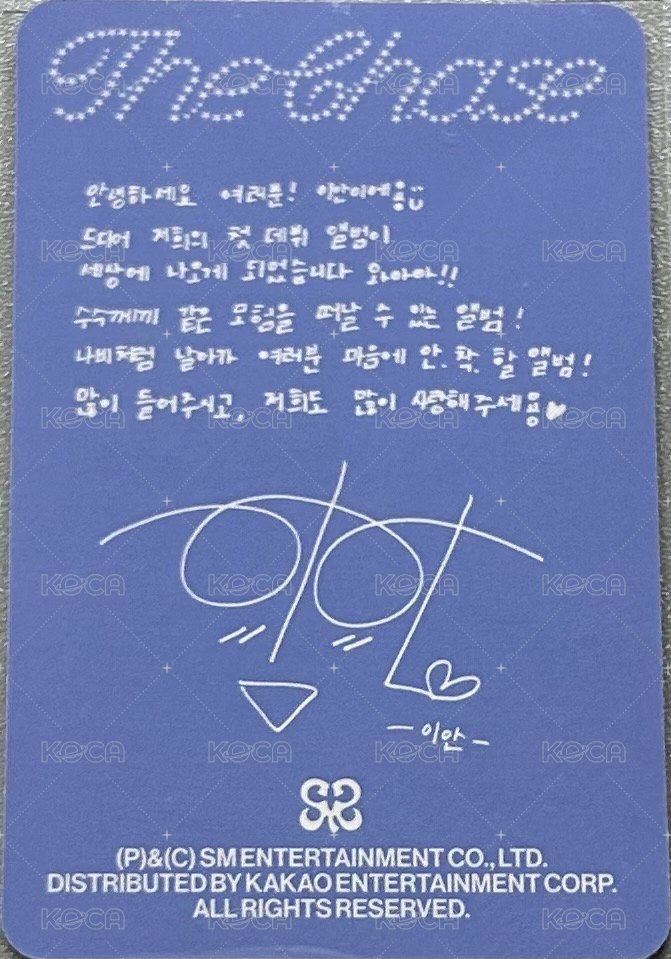 The Chase
안녕하세요 여러분! 이안이에용
드디어 저희의 첫 데뷔 앨범이
세상에 나오게 되었습니다 와아아!!
수수께끼 같은 모험을 떠날 수 있는 앨범!
나비처럼 날아가 여러분 마음에 안.착. 할 앨범!
많이 들어주시고, 저희도 많이 사랑해주세용♥
이안
- 이안 -
(P)&(C) SM ENTERTAINMENT CO., LTD.
DISTRIBUTED BY KAKAO ENTERTAINMENT CORP.
ALL RIGHTS RESERVED.
KOCA